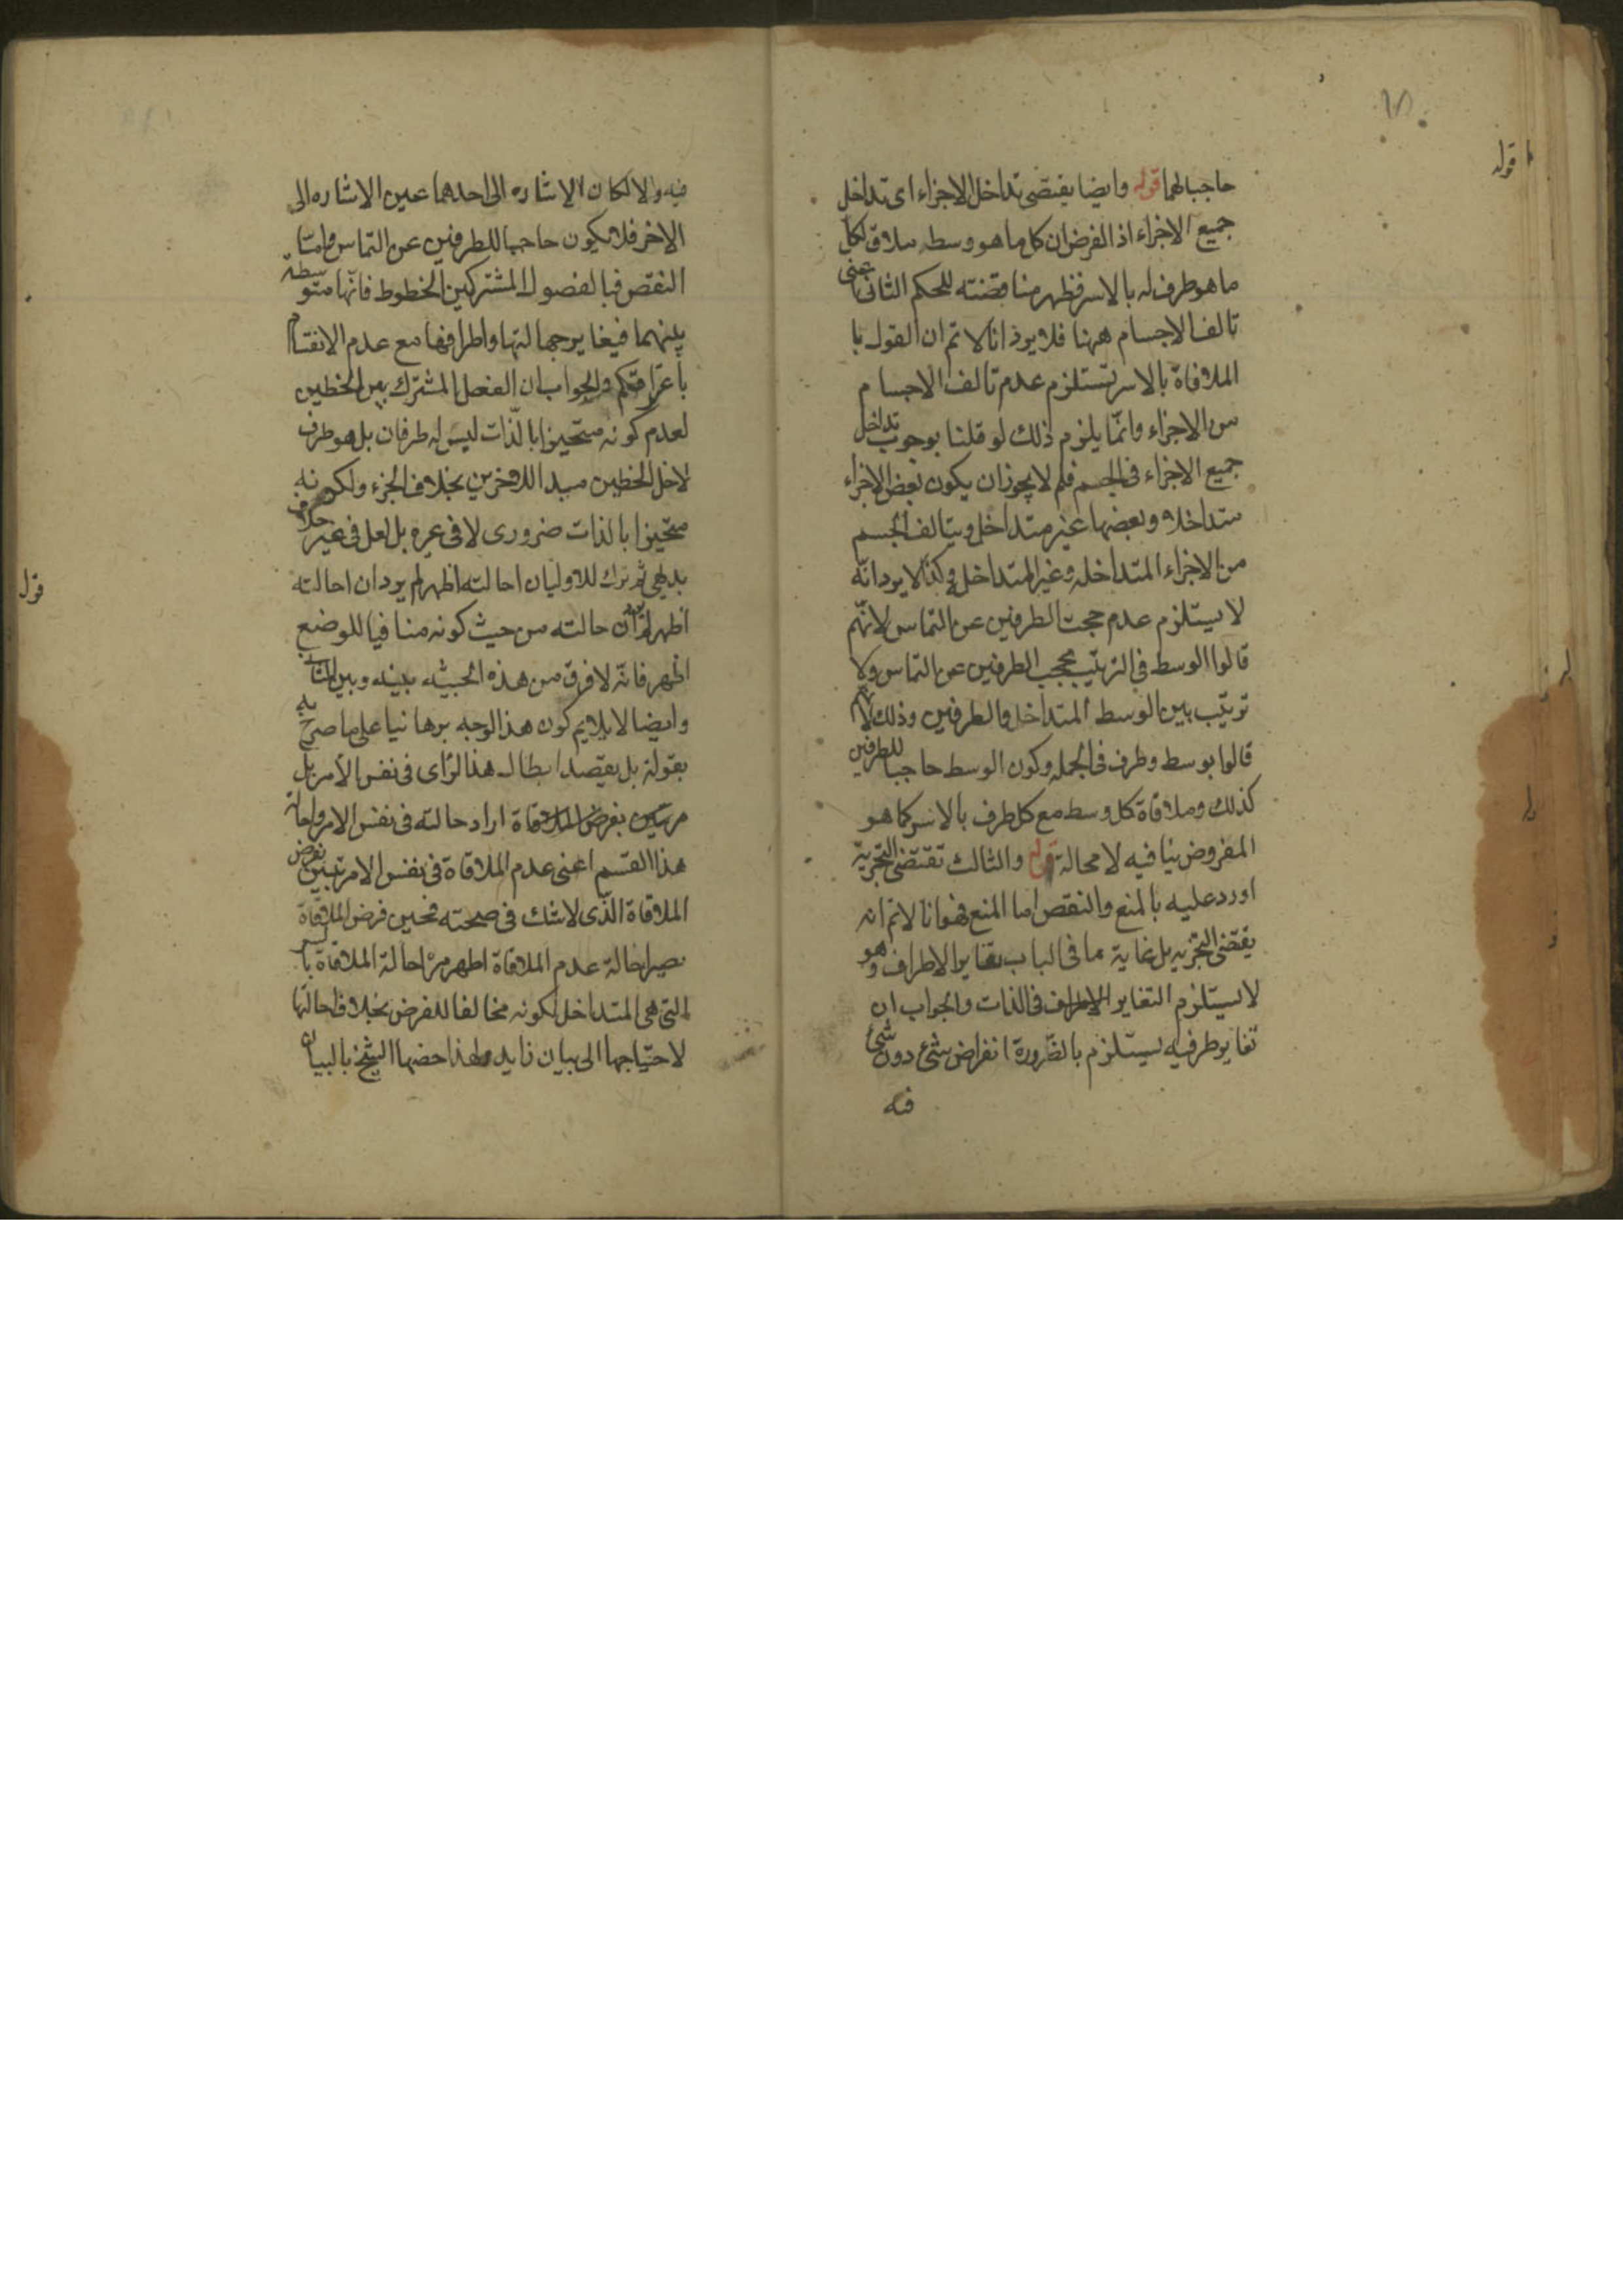 حاجبا لهما قوله وايضا يقتضى تداخل الاجزاء اى تداخل
جميع الاجزاء اذ الفرض ان كل ما هو وسط ملاق لكل
ما هو طرف له بالاسر فظهر مناقضته للحكم الثانى اعنى
تالف الاجسام ههنا فلا يرد انا لا نم ان القول با
الملاقاة بالاسر تستلزم عدم تالف الاجسام
من الاجزاء وانّما يلزم ذلك لو قلنا بوجوب تداخل
جميع الاجزاء فى الجسم فلم لا يجوز ان يكون بعض الاجزاء
متداخلا وبعضها غير متداخل ويتالف الجسم
من الاجزاء المتداخله وغير المتداخله وكذا لا يرد انّه
لا يستلزم عدم حجب الطرفين عن التماس لانّهم
قالوا الوسط فى الترتيب يحجب الطرفين عن التماس ولا
ترتيب بين الوسط المتداخل والطرفين وذلك لانّهم
قالوا بوسط وطرف فى الجمله وكون الوسط حاجبا للطرفين
كذلك وملاقاة كل وسط مع كل طرف بالاسر كما هو
المفروض ينافيه لا محالة قوله والثالث تقتضى التجزية
اورد عليه بالمنع والنقض اما المنع فهو انا لا نم انه
يقتضى التجزيه بل غاية ما فى الباب تغاير الاطراف وهو
لا يستلزم التغاير فى الذات والجواب ان
تغاير طرفيه يستلزم بالضّرورة انفراض شئ دون شئ
فيه
فيه والا لكان الاشاره الى احدهما عين الاشاره الى
الاخر فلا يكون حاجبا للطرفين عن التماس وامّا
النقض فبالفصول المشتركة بين الخطوط فانّها متوسطة
بينهما فيغاير جهالتها واطرافها مع عدم الانقسام
باعترافكم والجواب ان الفصل المشترك بين الخطين
لعدم كونه متحيزا بالذّات ليس له طرفان بل هو طرف
لاحد الخطين مبدا للاخر بخلاف الجزء ولكونه
متحيزا بالذات ضرورى لا فى غيره بل لعل فى غير خلاف
بديهى ثم ترك للاوليان احالته اظهر لم يرد ان احالته
اظهر لم يرد ان حالته من حيث كونه منافيا للوضع
اظهر فانّه لا فرق من هذه الحيثيه بينه وبين
وايضا لا يلايم كون هذا الوجه برهانيا على ما صرح به
بقوله بل يقصد ابطال هذا الرّاى فى نفس الأمر بل
بفرض الملاقاة اراد حالته فى نفس الامر واحالة
هذا القسم اعنى عدم الملاقاة فى نفس الامر بفرض
الملاقاة الذّى لا شك فى صحته فحين فرض الملاقاة
يصير احالة عدم الملاقاة اظهر من احالة الملاقاة بالاسر
التى هى المتداخل لكونه مخالفا للفرض بخلاف احالتها
لاحتياجها الى بيان زايد ولهذا خصّها الشيخ بالبيان
قوله
قوله